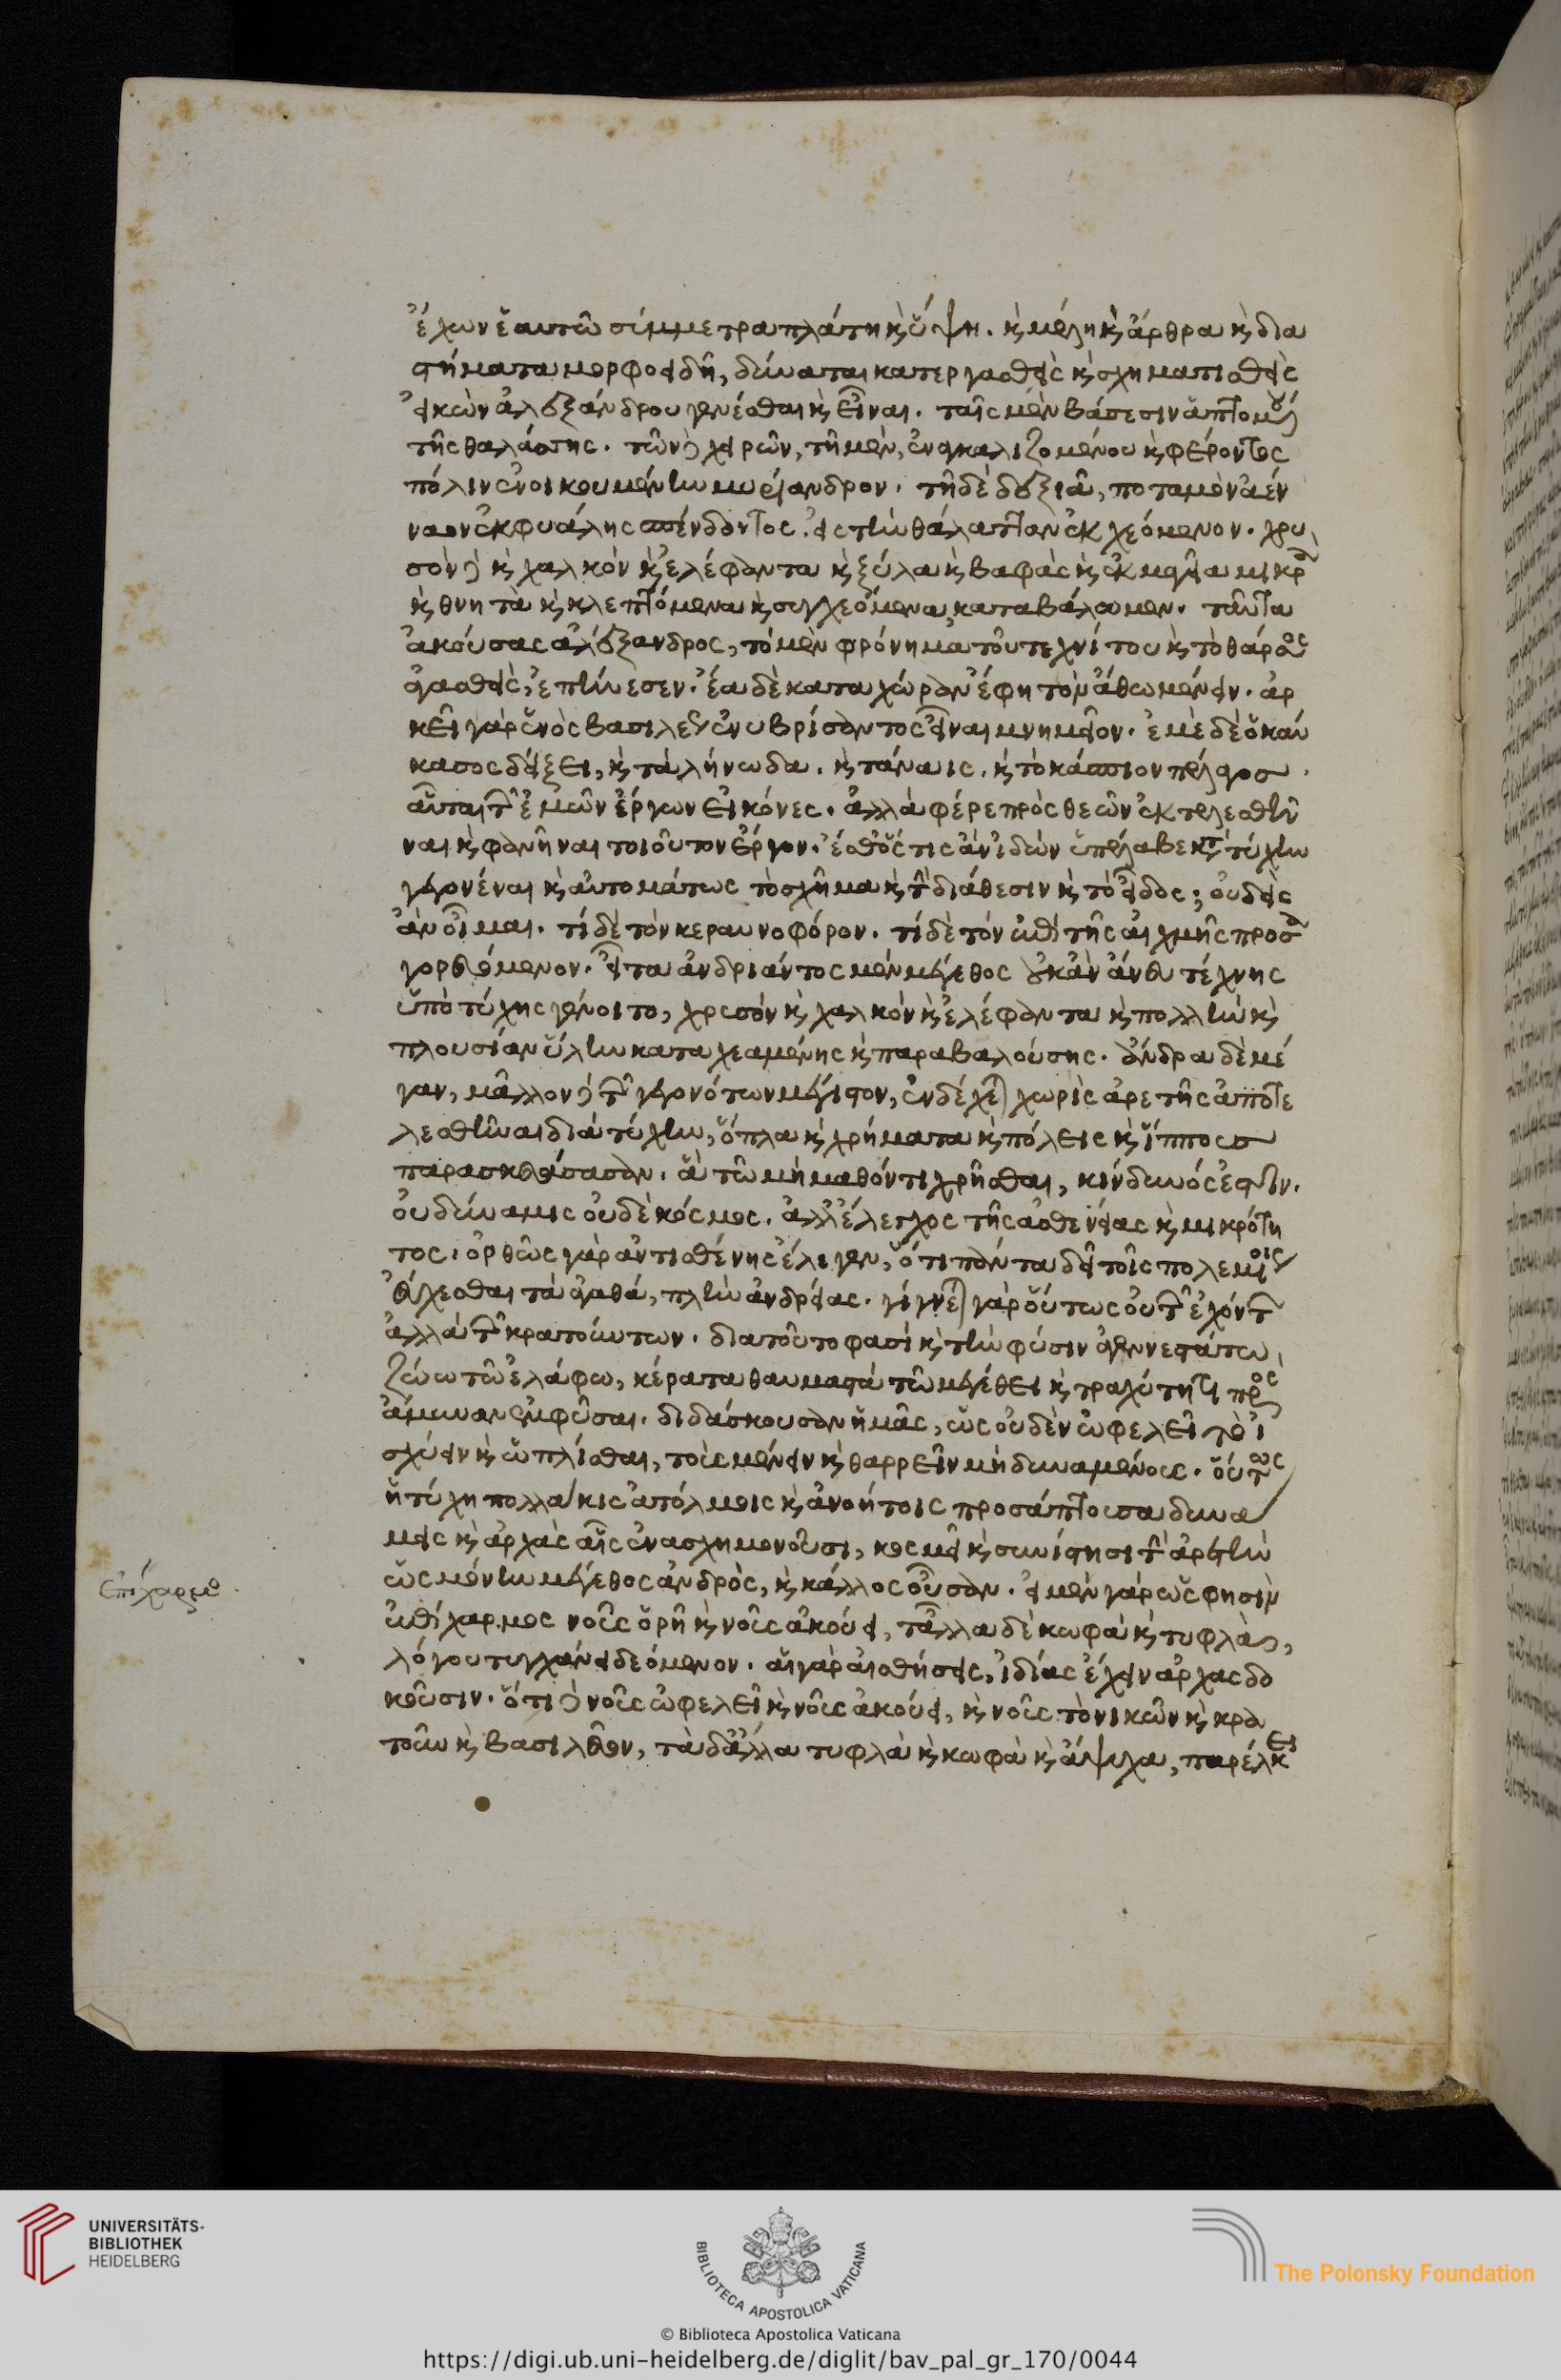 ἔχων ἑαυτῶ σύμμετρα πλάτη κ̀ ὕψη. κ̀ μέλη κ̀ ἄρθρα κ̀ δια
στήματα μορφοειδῆ, δύναται κατεργασθεὶς κ̀ σχηματισθεὶς
εἰκὼν ἀλεξάνδρου γενέσθαι κ̀ εἶναι. ταῖς μὲν βάσεσιν ἁπτομένου
τῆς θαλάσσης. τῶν δὲ χειρῶν, τῆ μὲν, ἐναγκαλιζομένου κ̀ φέροντος
πόλιν ἐνοικουμένην μυρίανδρον. τῆ δὲ δεξιᾶ, ποταμὸν ἀέν
ναον ἐκ φυάλης σπένδοντος. εἰς τὴν θάλατταν ἐκχεόμενον. χρυ
σὸν δὲ κ̀ χαλκὸν κ̀ ἐλέφαντα κ̀ ξύλα κ̀ βαφὰς κ̀ ἐκμαγεῖα μικρὰ
κ̀ θνητὰ κ̀ κλεπτόμενα κ̀ συγχεόμενα, καταβάλωμεν. ταῦτα
ἀκούσας ἀλέξανδρος, τὸ μὲν φρόνημα τοῦ τεχνίτου κ̀ τὸ θάρσος
ἀγασθεὶς, ἐπῄνεσεν. ἔα δὲ κατα χώραν ἔφη τὸν ἄθω μένειν. ἀρ
κεῖ γὰρ ἑνὸς βασιλέως ἐνυβρίσαντος εἶναι μνημεῖον. ἐμὲ δὲ ὁ καύ
κασος δείξει, κ̀ τὰ ἠμωδὰ. κ̀ τάναις. κ̀ τὸ κάσπιον πέλαγος.
αὗται τῶν ἐμῶν ἔργων εἰκόνες. ἀλλὰ φέρε πρὸς θεῶν ἐκτελεσθῆ
ναι κ̀ φανῆναι τοιοῦτον ἔργον. ἔσθ' ὅστις ἂν ἰδὼν ὑπέλαβε κατὰ τύχην
γεγονέναι κ̀ αὐτομάτως τὸ σχῆμα κ̀ τὴν διάθεσιν κ̀ τὸ εἶδος; οὐδεὶς
ἂν οἶμαι. τί δὲ τὸν κεραυνοφόρον. τί δὲ τὸν ἐπὶ τῆς αἰχμῆς προσα
γορευόμενον. εἶτα ἀνδριάντος μὲν μέγεθος οὐκ ἂν ἄνευ τέχνης
ὑπὸ τύχης γένοιτο, χρυσὸν κ̀ χαλκὸν κ̀ ἐλέφαντα κ̀ πολλὴν κ̀
πλουσίαν ὕλην καταχεαμένης κ̀ παραβαλούσης. ἄνδρα δὲ μέ
γαν, μᾶλλον δὲ τῶν γεγονότων μέγιστον, ἐνδέχεται χωρὶς ἀρετῆς ἀποτε
λεσθῆναι διὰ τύχην, ὅπλα κ̀ χρήματα κ̀ πόλεις κ̀ ἵππους
παρασκευάσασαν. ἃ τῶ μὴ μαθόντι χρῆσθαι, κίνδυνός ἐστιν.
οὐ δύναμις οὐδὲ κόσμος. ἀλλ' ἔλεγχος τῆς ἀσθενείας κ̀ μικρότη
τος. ὀρθῶς γὰρ ἀντισθένης ἔλεγεν, ὅτι πάντα δεῖ τοῖς πολεμίοις
εὔχεσθαι τὰ ἀγαθά, πλὴν ἀνδρείας. γίγνεται γὰρ οὕτως οὐ τῶν ἐχόντων
ἀλλὰ τῶν κρατούντων. διατοῦτο φασὶ κ̀ τὴν φύσιν ἀγεννεστάτω
ζώω τῶ ἐλάφω, κέρατα θαυμαστὰ τῶ μεγέθει κ̀ τραχύτητι πρὸς
ἄμυναν ἐμφῦσαι. διδάσκουσαν ἡμᾶς, ὡς οὐδὲν ὠφελεῖ τὸ ἰ
σχύειν κ̀ ὡπλίσθαι, τοῖς μένειν κ̀ θαρρεῖν μὴ δυναμένοις. οὕτως
ἡ τύχη πολλάκις ἀτόλμοις κ̀ ἀνοήτοις προσάπτουσα δυνά
μεις κ̀ ἀρχὰς αἷς ἐνασχημονοῦσι, κοσμεῖ κ̀ συνίστησι τὴν ἀρετὴν
ὡς μόνην μέγεθος ἀνδρὸς, κ̀ κάλλος οὖσαν. εἰ μὲν γὰρ ὥς φησιν
ἐπίχαρμος νοῦς ὁρῆ κ̀ νοῦς ἀκούει, τἆλλα δὲ κωφὰ κ̀ τυφλὰ,
λόγου τυγχάνει δεόμενον. αἱ γὰρ αἰσθήσεις, ἰδίας ἔχειν ἀρχὰς δο
κοῦσιν. ὅτι δὲ νοῦς ὠφελεῖ κ̀ νοῦς ἀκούει, κ̀ νοῦς τὸ νικῶν κ̀ κρα
τοῦν κ̀ βασιλεῦον, τὰ δ' ἄλλα τυφλὰ κ̀ κωφὰ κ̀ ἄψυχα, παρέλκει
ἐπίχαρμου
UNIVERSITÄTS-
BIBLIOTHEK
HEIDELBERG
BIBLIOTECA APOSTOLICA VATICANA
The Polonsky Foundation
© Biblioteca Apostolica Vaticana
https://digi.ub.uni-heidelberg.de/diglit/bav_pal_gr_170/0044